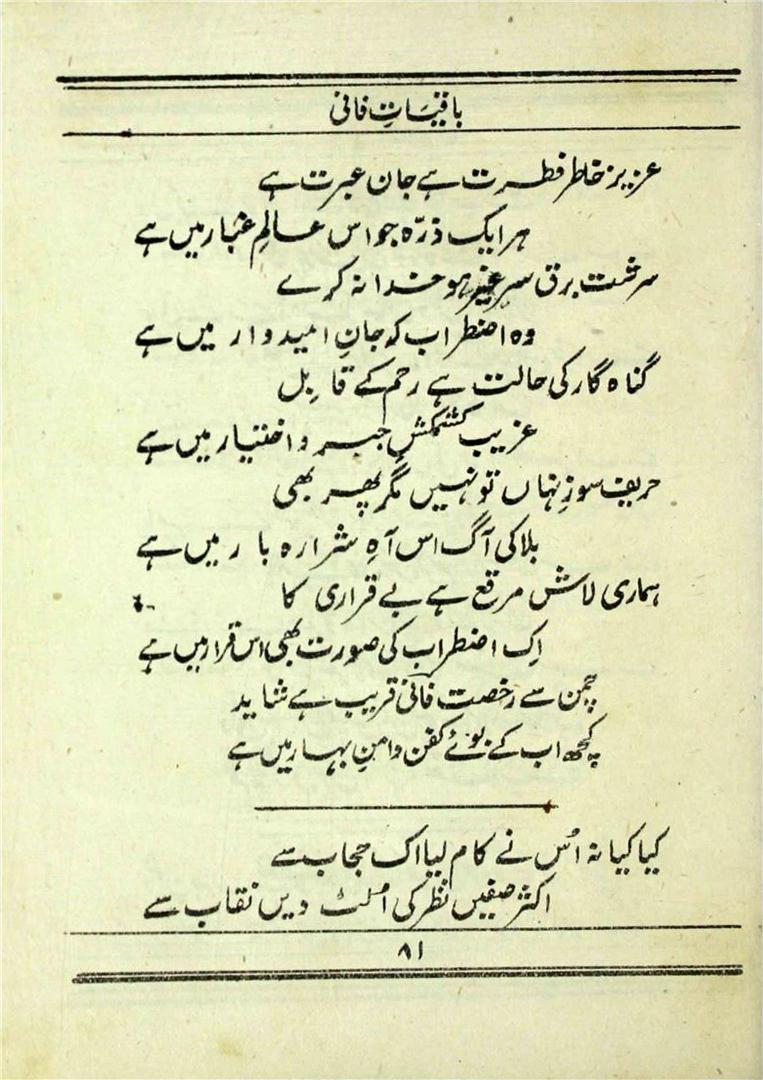 باقیاتِ فانی
عزیز خاطر فطرت ہے جان عبرت ہے
ہر ایک ذرّہ جو اس عالمِ غبار میں ہے
سرشت برق سر غیر ہو خدا نہ کرے
وہ اضطراب کہ جانِ امیدوار میں ہے
گناہ گار کی حالت ہے رحم کے قابل
غریب کشمکشِ جبر و اختیار میں ہے
حریف سوزِ نہاں تو نہیں مگر پھر بھی
بلا کی آگ اس آہِ شرارہ بار میں ہے
ہماری لاش مرقع ہے بے قراری کا
اِک اضطراب کی صورت بھی اس قرار میں ہے
چمن سے رخصت فانی قریب ہے شاید
کچھ اب کے بوئے کفن دامنِ بہار میں ہے
کیا کیا نہ اُس نے کام لیا اک حجاب سے
اکثر صفیں نظر کی اُلٹ دیں نقاب سے
۸۱